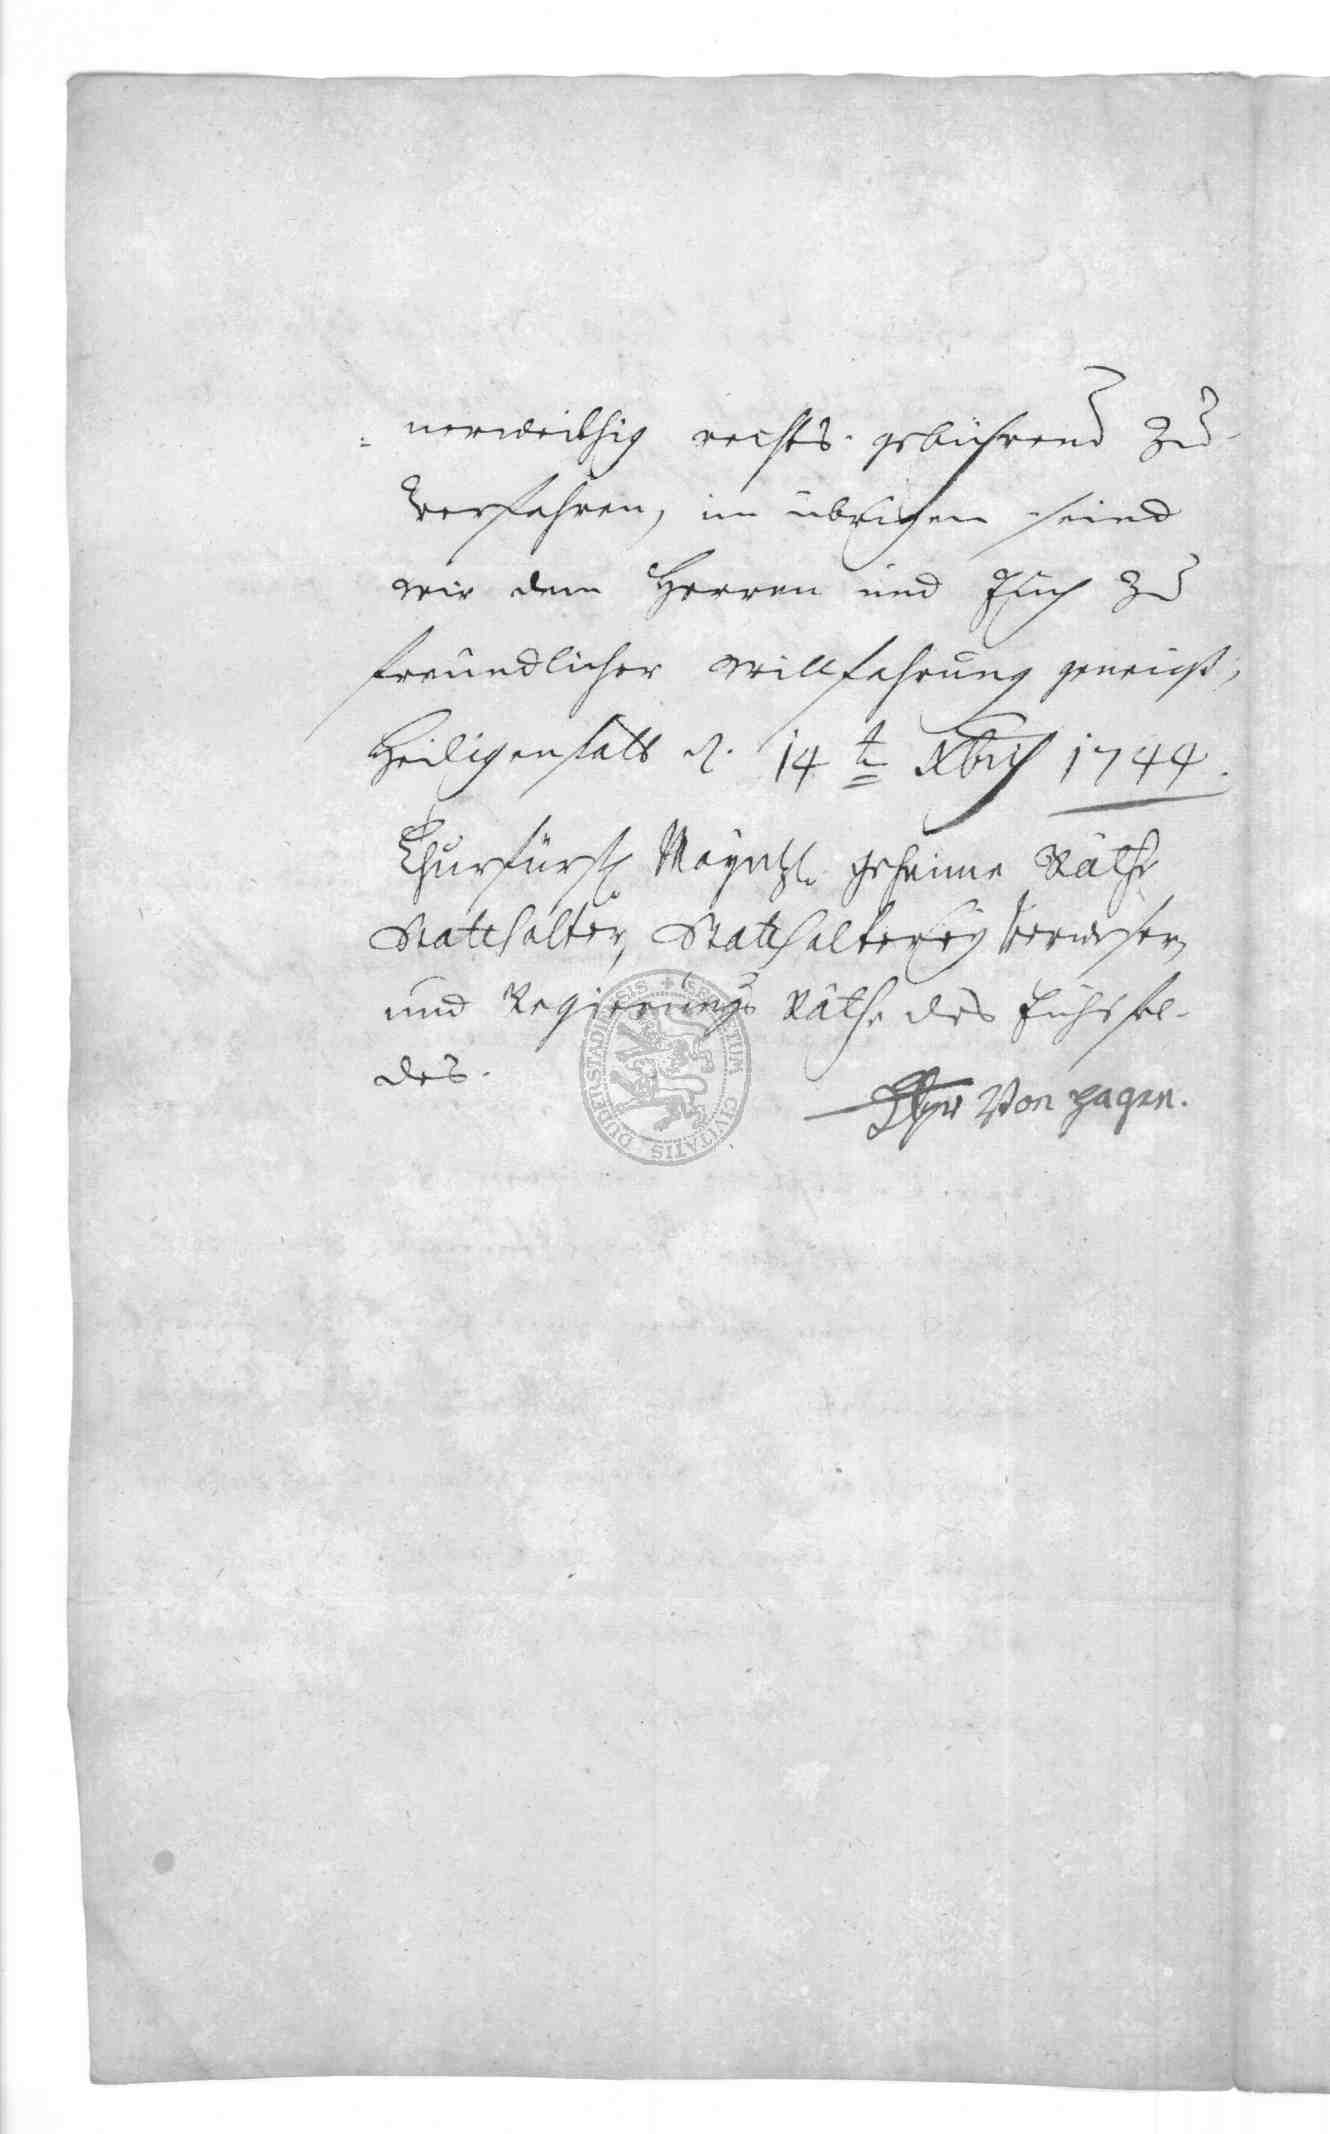 = nerweithig rechts-gebührend zu-
verfahren, im übrigen seind
wir dem Herren und Euch zu
freundlicher willfahrung geneigt,
Heiligenstatt d. 14t 10bris 1744.
Churfürstl. Mayntzl. geheime Räthe
Statthalter, Statthalterey Verweser,
und Regierungs Räthe des Eichsfel-
des.
von Hagen.
SECRETUM CIVITATIS DUDERSTADENSIS